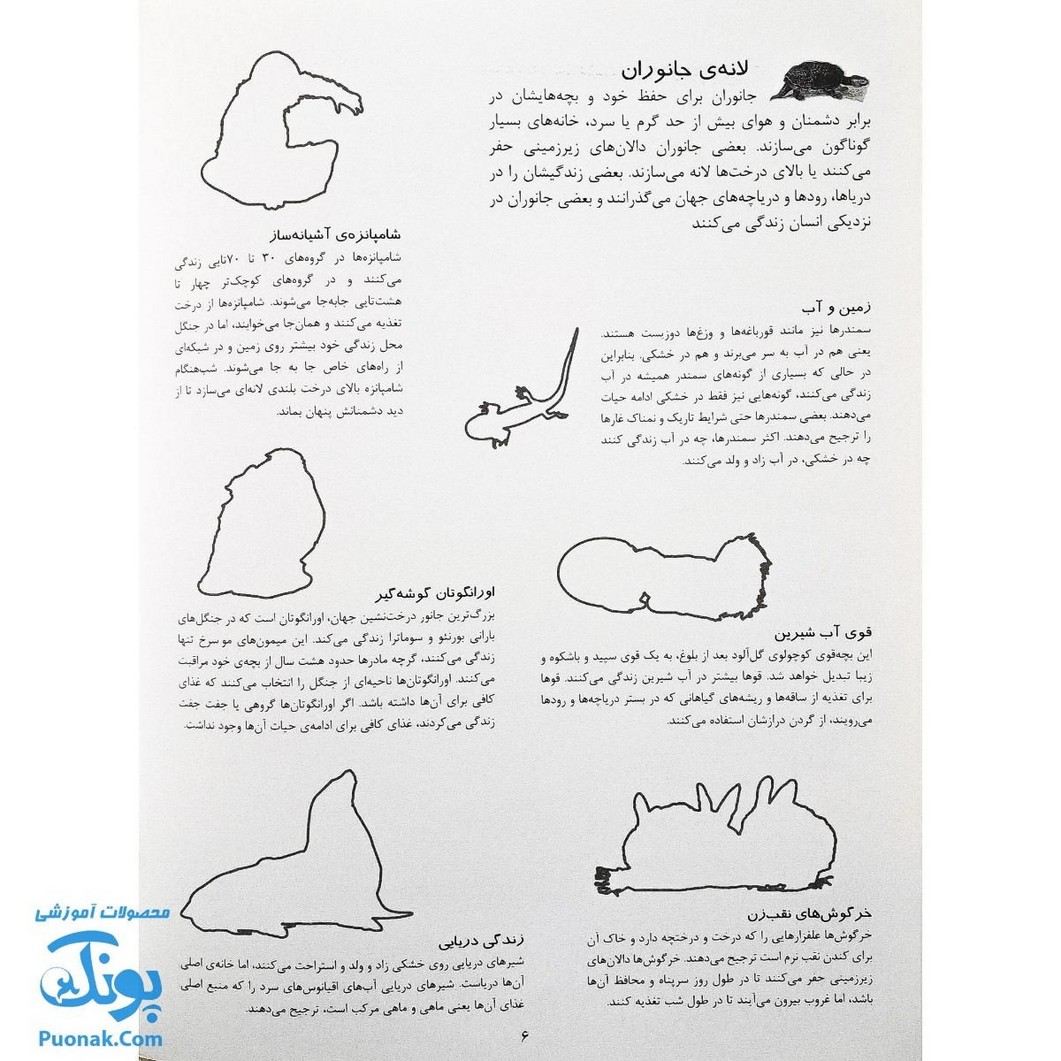 لانه‌ی جانوران
جانوران برای حفظ خود و بچه‌هایشان در
برابر دشمنان و هوای بیش از حد گرم یا سرد، خانه‌های بسیار
گوناگون می‌سازند. بعضی جانوران دالان‌های زیرزمینی حفر
می‌کنند یا بالای درخت‌ها لانه می‌سازند. بعضی زندگیشان را در
دریاها، رودها و دریاچه‌های جهان می‌گذرانند و بعضی جانوران در
نزدیکی انسان زندگی می‌کنند
زمین و آب
سمندرها نیز مانند قورباغه‌ها و وزغ‌ها دوزیست هستند.
یعنی هم در آب به سر می‌برند و هم در خشکی. بنابراین
در حالی که بسیاری از گونه‌های سمندر همیشه در آب
زندگی می‌کنند، گونه‌هایی نیز فقط در خشکی ادامه حیات
می‌دهند. بعضی سمندرها حتی شرایط تاریک و نمناک غارها
را ترجیح می‌دهند. اکثر سمندرها، چه در آب زندگی کنند
چه در خشکی، در آب زاد و ولد می‌کنند.
قوی آب شیرین
این بچه‌قوی کوچولوی گل‌آلود بعد از بلوغ، به یک قوی سپید و باشکوه و
زیبا تبدیل خواهد شد. قوها بیشتر در آب شیرین زندگی می‌کنند. قوها
برای تغذیه از ساقه‌ها و ریشه‌های گیاهانی که در بستر دریاچه‌ها و رودها
می‌رویند، از گردن درازشان استفاده می‌کنند.
خرگوش‌های نقب‌زن
خرگوش‌ها علفزارهایی را که درخت و درختچه دارد و خاک آن
برای کندن نقب نرم است ترجیح می‌دهند. خرگوش‌ها دالان‌های
زیرزمینی حفر می‌کنند تا در طول روز سرپناه و محافظ آن‌ها
باشد، اما غروب بیرون می‌آیند تا در طول شب تغذیه کنند.
شامپانزه‌ی آشیانه‌ساز
شامپانزه‌ها در گروه‌های ۳۰ تا ۷۰تایی زندگی
می‌کنند و در گروه‌های کوچک‌تر چهار تا
هشت‌تایی جابه‌جا می‌شوند. شامپانزه‌ها از درخت
تغذیه می‌کنند و همان‌جا می‌خوابند، اما در جنگل
محل زندگی خود بیشتر روی زمین و در شبکه‌ای
از راه‌های خاص جا به جا می‌شوند. شب‌هنگام
شامپانزه بالای درخت بلندی لانه‌ای می‌سازد تا از
دید دشمنانش پنهان بماند.
اورانگوتان گوشه‌گیر
بزرگ‌ترین جانور درخت‌نشین جهان، اورانگوتان است که در جنگل‌های
بارانی بورنئو و سوماترا زندگی می‌کند. این میمون‌های مو سرخ تنها
زندگی می‌کنند، گرچه مادرها حدود هشت سال از بچه‌ی خود مراقبت
می‌کنند. اورانگوتان‌ها ناحیه‌ای از جنگل را انتخاب می‌کنند که غذای
کافی برای آن‌ها داشته باشد. اگر اورانگوتان‌ها گروهی یا جفت جفت
زندگی می‌کردند، غذای کافی برای ادامه‌ی حیات آن‌ها وجود نداشت.
زندگی دریایی
شیرهای دریایی روی خشکی زاد و ولد و استراحت می‌کنند، اما خانه‌ی اصلی
آن‌ها دریاست. شیرهای دریایی آب‌های اقیانوس‌های سرد را که منبع اصلی
غذای آن‌ها یعنی ماهی و ماهی مرکب است، ترجیح می‌دهند.
۶
محصولات آموزشی
پونک
Puonak.Com